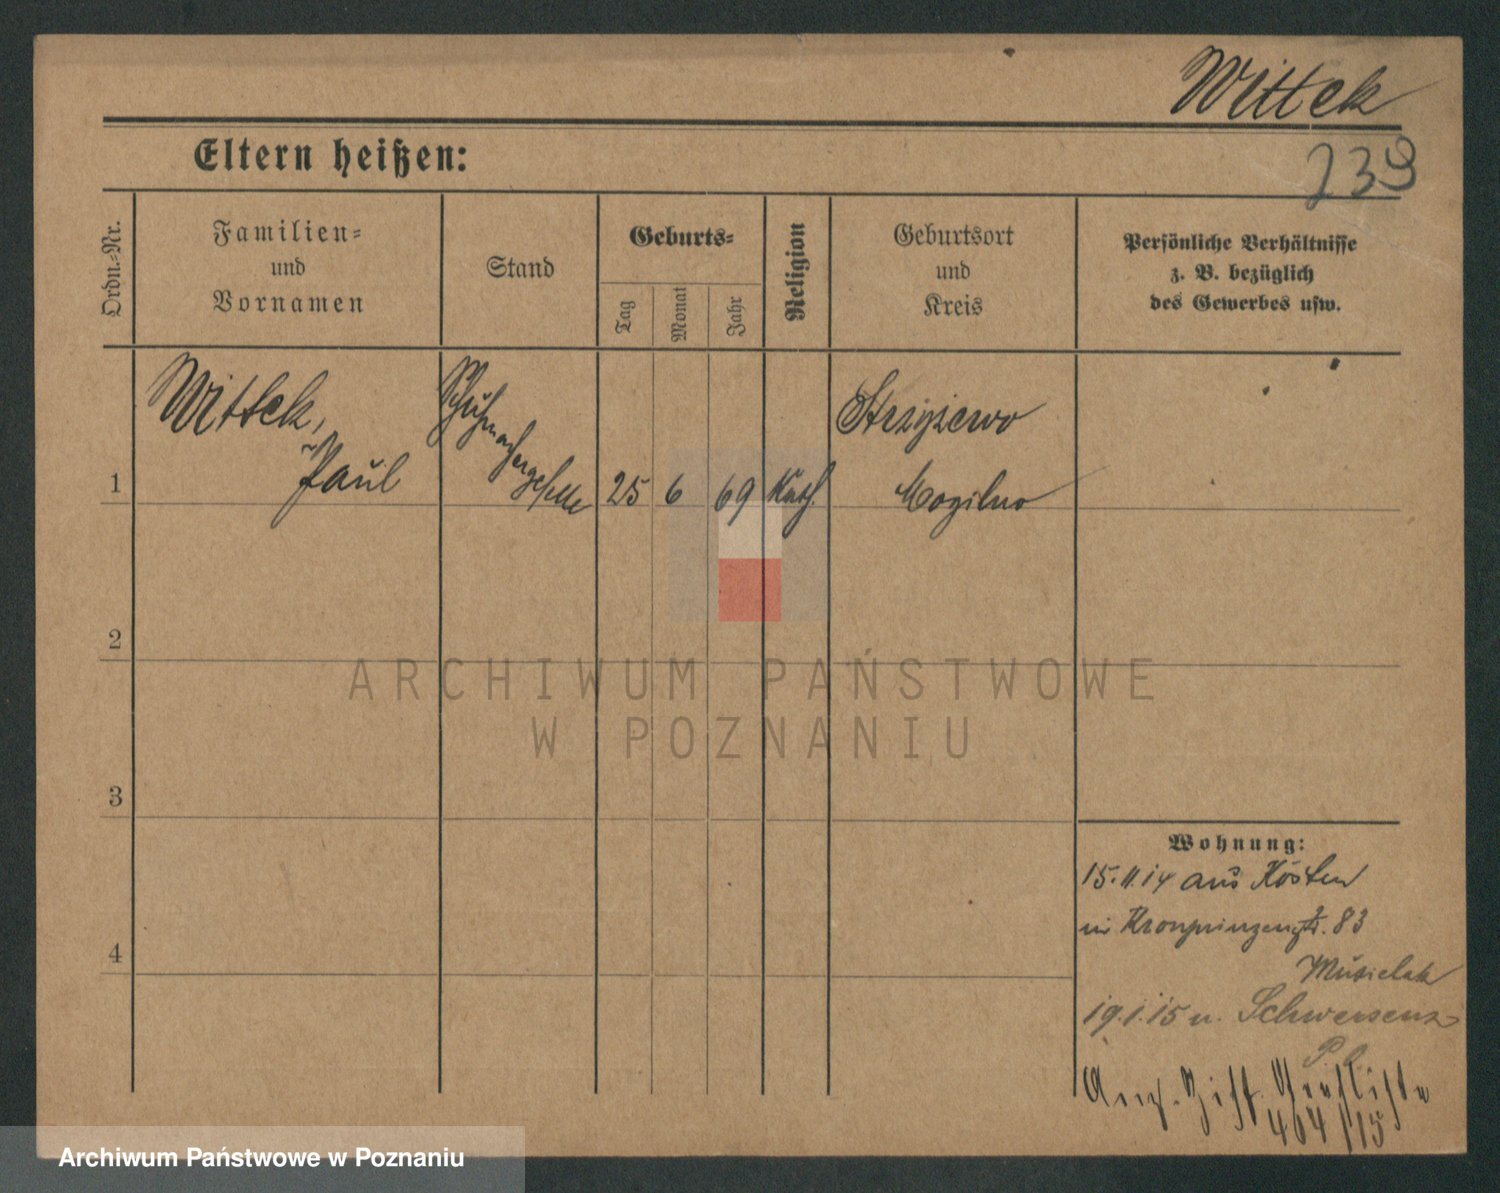 Wittek
239
Eltern heißen:
Ordn.-Nr.
Familien-
und
Vornamen
Stand
Geburts-
Tag
Monat
Jahr
Religion
Geburtsort
und
Kreis
Persönliche Verhältnisse
z. B. bezüglich
des Gewerbes usw.
1
Wittek,
Paul
Schuhmachergeselle
25
6
69
Kath.
Strzyzewo
Mogilno
2
3
4
Wohnung:
15.11.14 aus Kosten
Kronprinzenstr. 83
Musielak
19.1.15 n. Schwersenz
464/15
ARCHIWUM PAŃSTWOWE
W POZNANIU
Archiwum Państwowe w Poznaniu